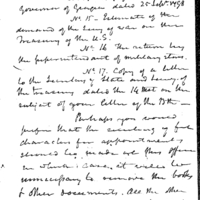 Governor of Georgia dated 25 Sept 1798
No. 15. Estimate of the
demand of the Secy of War on the
Treasury of the U.S.
No. 16. The return by
the Superintendant of military stores.
No. 17. Copy of a letter
to the Secretary of State and Secy of
the treasury dated the 14 Inst on the
subject of your letter of the 13th
Perhaps you would
prefer that the
characters for appointments,
should be made at this office
in such case, it will be
unnecessary to remove the books
& other documents. All the other